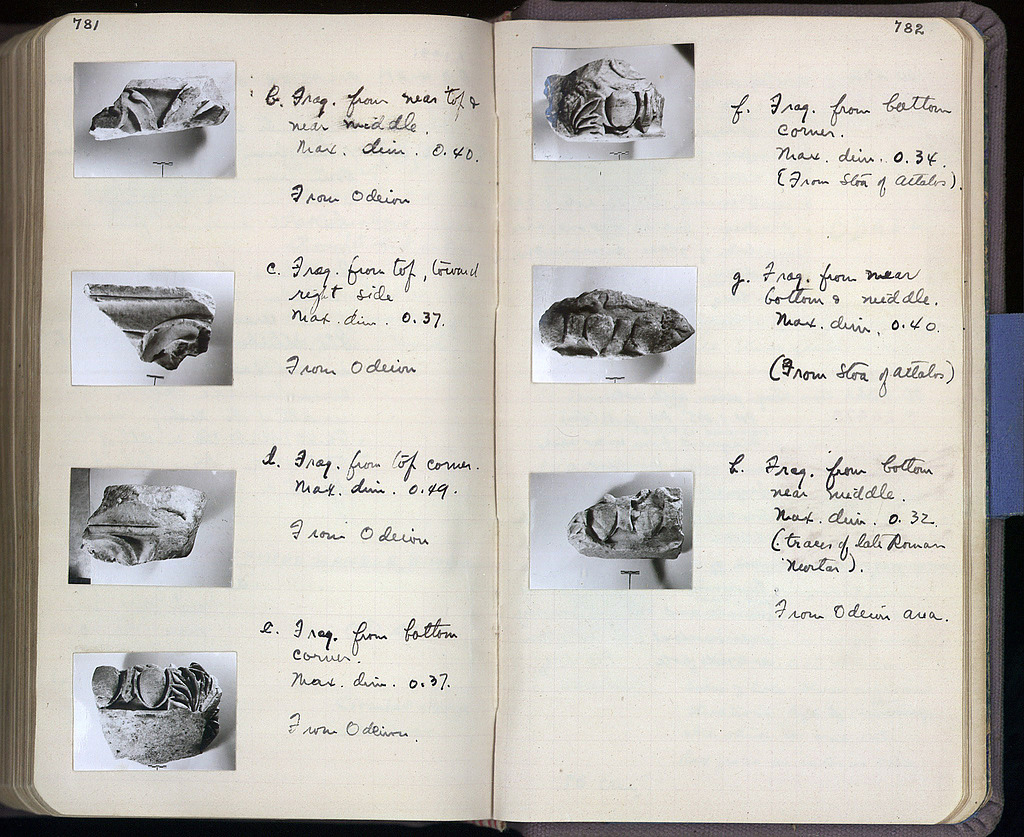 781
b. Frag. from near top &
near middle.
Max. dim. 0.40.
From Odeion
c. Frag. from top, toward
right side
Max. dim. 0.37.
From Odeion
d. Frag. from top corner.
Max. dim. 0.49.
From Odeion
e. Frag. from bottom
corner.
Max. dim. 0.37.
From Odeion.
782
f. Frag. from bottom
corner.
Max. dim. 0.34.
(From Stoa of Attalos).
g. Frag. from near
bottom & middle.
Max. dim. 0.40.
(From Stoa of Attalos)
h. Frag. from bottom
near middle.
Max. dim. 0.32.
(traces of late Roman
mortar).
From Odeion area.